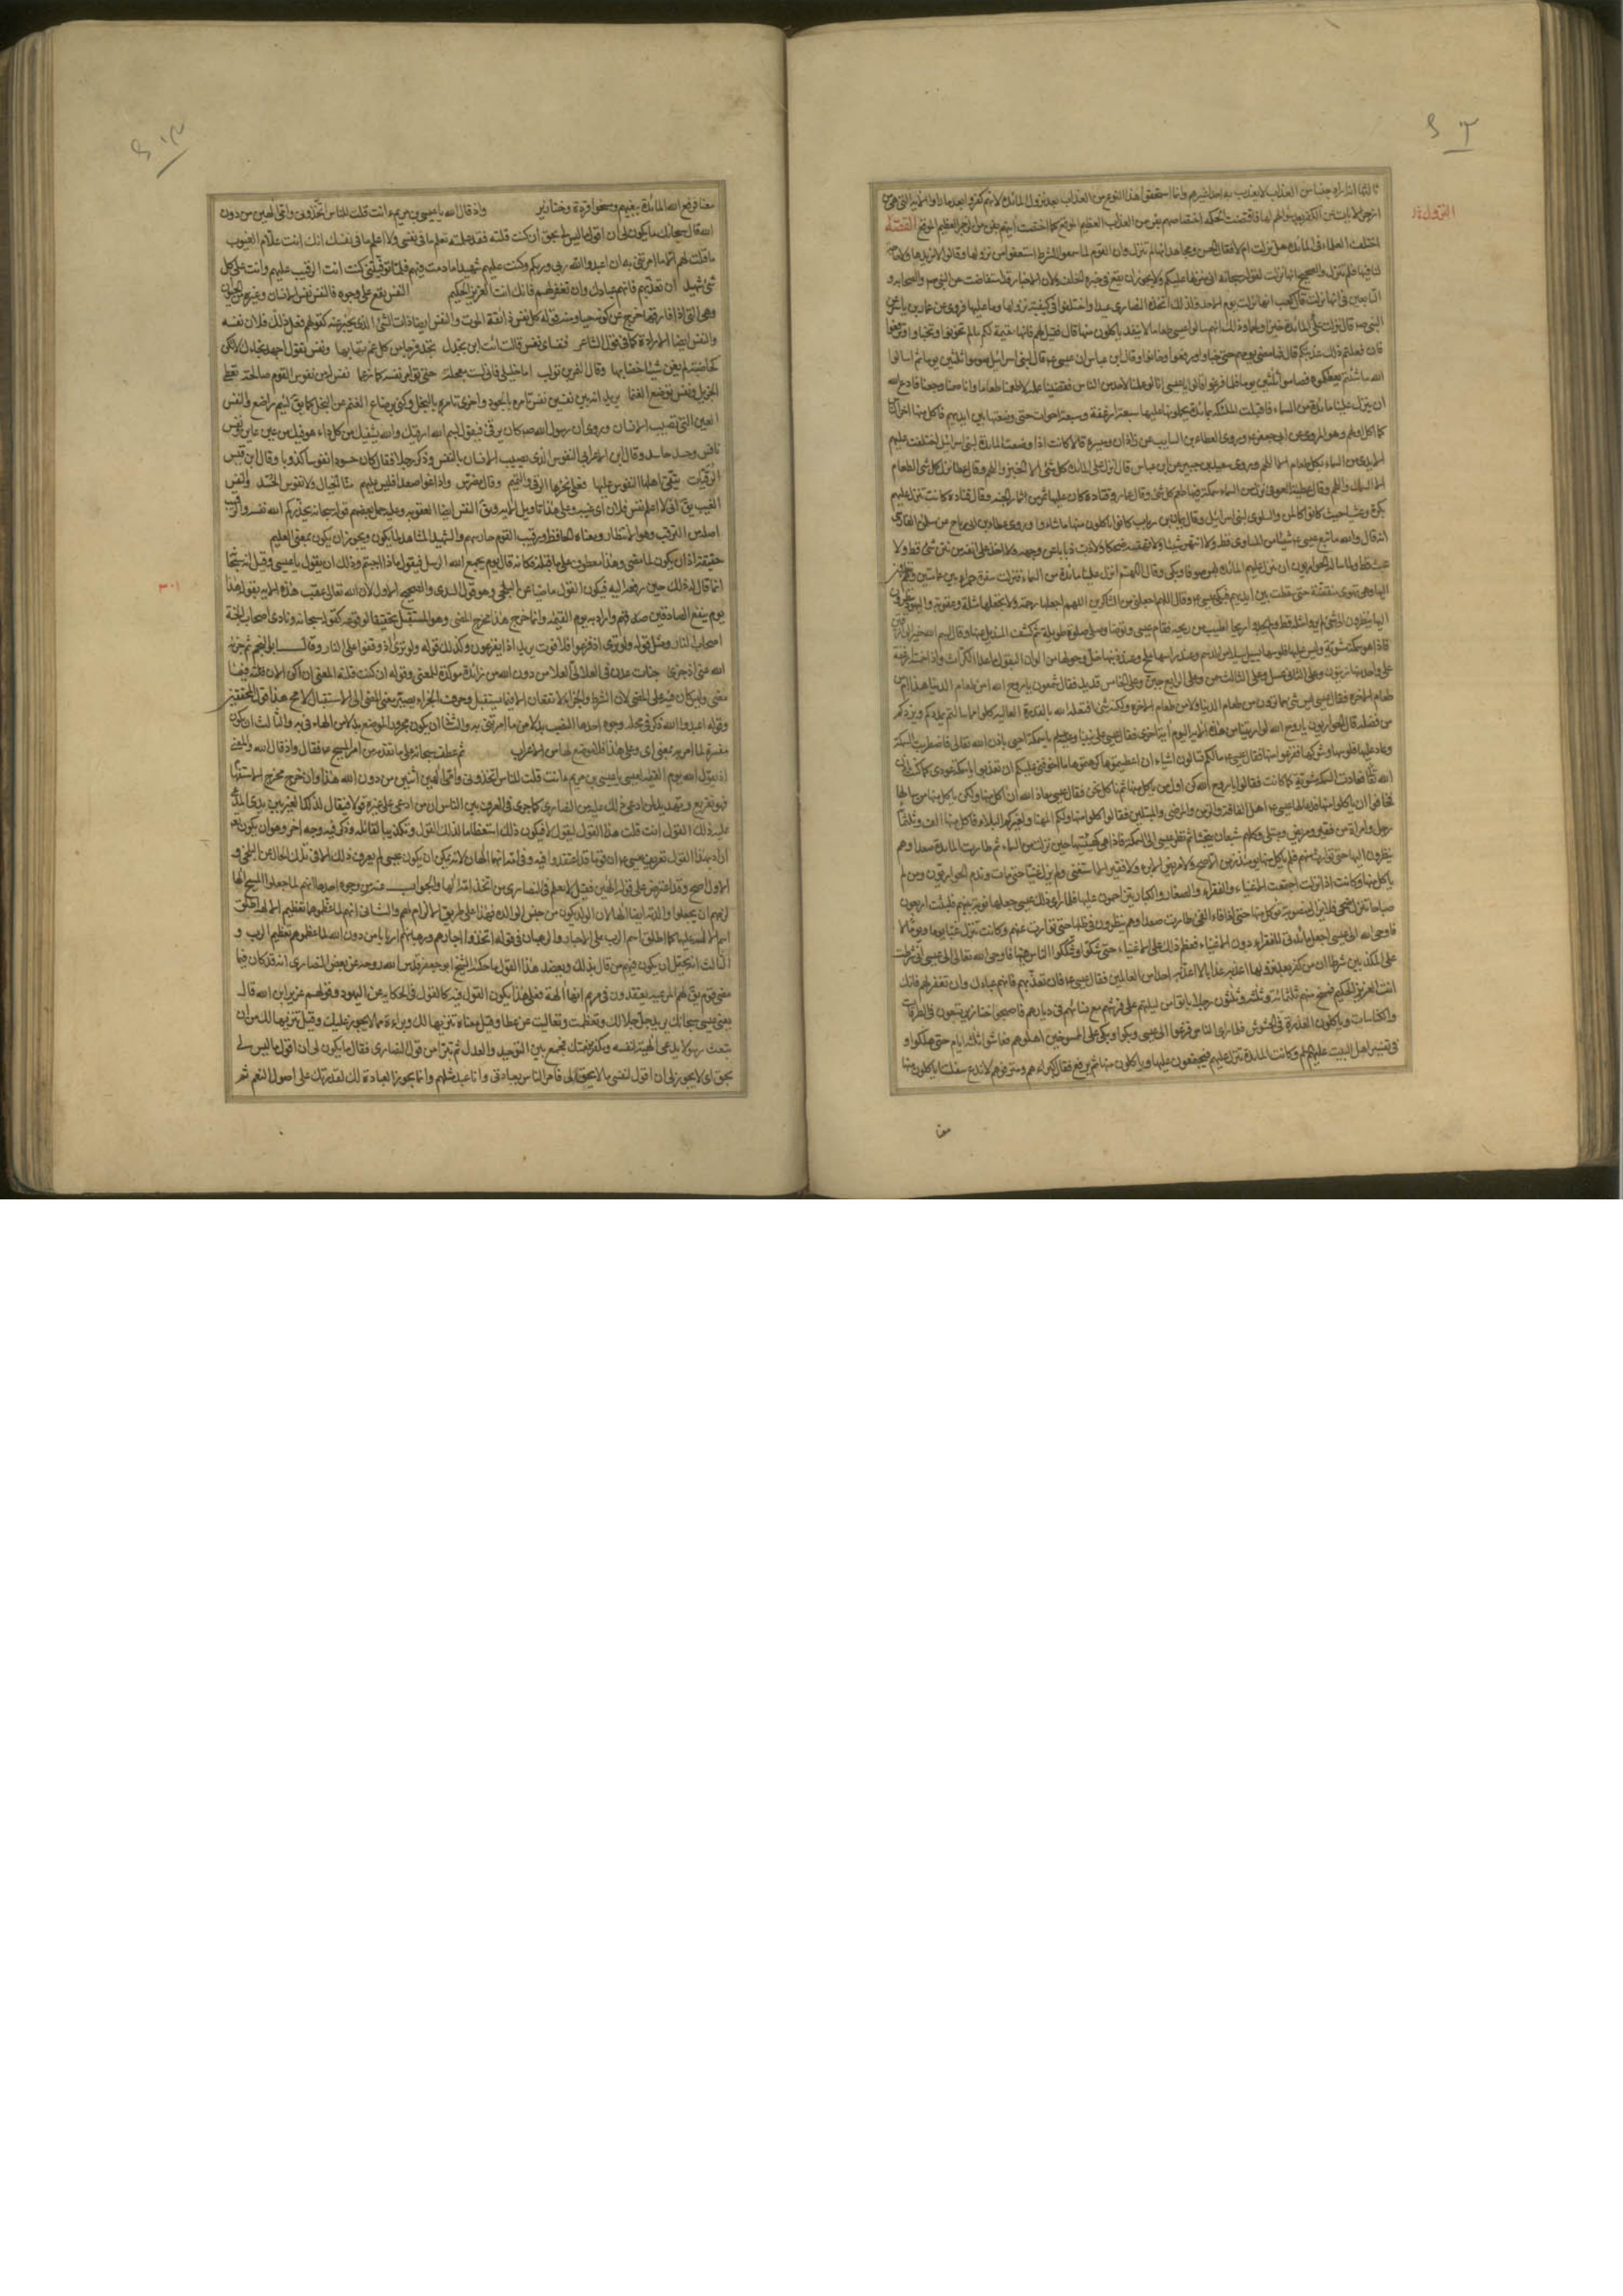 ثالثها انه اراد جنسا من العذاب لا يعذب به احدا غيرهم وانما استحقوا هذا النوع من العذاب بعد نزول المائدة لانهم كفروا بعد ما راوا الآية التي هي من
ازجر الآيات عن الكفر بعد سؤالهم لها فاقتضت الحكمة اختصاصهم بفن من العذاب العظيم الموقع كما اختصت آيتهم بفن من الزجر العظيم الموقع القصة
النزول
اختلف العلماء في المائدة هل نزلت ام لا فقال الحسن ومجاهد انها لم تنزل وان القوم لما سمعوا الشرط استعفوا من نزولها وقالوا لا نريدها ولا حاجة
لنا فيها فلم تنزل والصحيح انها نزلت لقوله سبحانه اني منزلها عليكم ولا يجوز ان يقع في خبره الخلف ولان الاخبار قد استفاضت عن النبي ص والصحابة و
التابعين في انها نزلت قال كعب انها نزلت يوم الاحد ولذلك اتخذه النصارى عيدا واختلفوا في كيفية نزولها وما عليها فروي عن عمار بن ياسر عن
النبي ص قال نزلت المائدة خبزا ولحما وذلك انهم سالوا عيسى طعاما لا ينفد ياكلون منها قال فقيل لهم فانها مقيمة لكم ما لم تخونوا وتخباوا وترفعوا
فان فعلتم ذلك عذبتكم قال فما مضى يومهم حتى خباوا ورفعوا وخانوا وقال ابن عباس ان عيسى ع قال لبني اسرائيل صوموا ثلثين يوما ثم اسالوا
الله ما شئتم يعطكموه فصاموا ثلثين يوما فلما فرغوا قالوا يا عيسى انا لو عملنا لاحد من الناس فقضينا عمله لاطعمنا طعاما وانا صمنا وجعنا فادع الله
ان ينزل علينا مائدة من السماء فاقبلت الملائكة بمائدة يحملونها عليها سبعة ارغفة وسبعة احوات حتى وضعتها بين ايديهم فاكل منها آخر الناس
كما اكل اولهم وهو المروي عن ابي جعفر ع وروى العطاء بن السايب عن زاذان وميسرة قالا كانت اذا وضعت المائدة لبني اسرائيل اختلفت عليهم
الايدي من السماء بكل طعام الا اللحم وروى سعيد بن جبير عن ابن عباس قال انزل على المائدة كل شئ الا الخبز واللحم وقال عطا نزل كل شئ الطعام
الا السمك واللحم وقال عطية العوفي نزل من السماء سمكة فيها طعم كل شئ وقال عمار وقتادة كان عليها ثمر من اثمار الجنة وقال قتادة كانت تنزل عليهم
بكرة وعشيا حيث كانوا كالمن والسلوى لبني اسرائيل وقال يمان بن رباب كانوا ياكلون منها ما شاءوا وروى عطا بن ابي رباح من سلمان الفارسي
انه قال والله ما تبع عيسى ع شيئا من المساوي قط ولا انتهر شيئا ولا قهقه ضحكا ولا ذب ذبابا عن وجهه ولا اخذ على انفه من نتن شئ قط ولا
عبث قط ولما ساله الحواريون ان ينزل عليهم المائدة لبس صوفا وبكى وقال اللهم انزل علينا مائدة من السماء فنزلت سفرة حمراء بين غمامتين وهم ينظرون
اليها وهي تهوي منقضة حتى سقطت بين ايديهم فبكى عيسى ع وقال اللهم اجعلني من الشاكرين اللهم اجعلها رحمة ولا تجعلها مثلة وعقوبة واليهود ينظرون
اليها ينظرون الى شئ لم يروا مثله قط ولم يجدوا ريحا اطيب من ريحه فقام عيسى وتوضا وصلى صلوة طويلة ثم كشف المنديل عنها وقال بسم الله خير الرازقين
فاذا هو سمكة مشوية وليس عليها فلوسها يسيل سيلا من الدسم وعند راسها ملح وعند ذنبها خل وحولها من الوان البقول ما عدا الكراث واذا خمسة ارغفة
على واحد منها زيتون وعلى الثاني عسل وعلى الثالث سمن وعلى الرابع جبن وعلى الخامس قديد فقال شمعون يا روح الله امن طعام الدنيا هذا ام من
طعام الآخرة فقال عيسى ليس شئ مما ترون من طعام الدنيا ولا من طعام الآخرة ولكنه شئ افتعله الله بالقدرة العالية كلوا مما سالتم يمددكم ويزدكم
من فضله قال الحواريون يا روح الله لو اريتنا من هذه الآية اليوم آية اخرى فقال عيسى على نبينا وعليه السلام يا سمكة احيي باذن الله تعالى فاضطربت السمكة
وعاد عليها فلوسها وشوكها ففزعوا منها فقال عيسى ع ما لكم تسالون اشياء اذا اعطيتموها كرهتموها ما اخوفني عليكم ان تعذبوا يا سمكة عودي كما كنت باذن
الله تعالى فعادت السمكة مشوية كما كانت فقالوا يا روح الله كن اول من ياكل منها ثم ناكل نحن فقال عيسى معاذ الله ان آكل منها ولكن ياكل منها من سالها
فخافوا ان ياكلوا منها فدعا لها عيسى ع اهل الفاقة والزمن والمرضى والمبتلين فقال كلوا منها ولكم المهنا ولغيركم البلاء فاكل منها الف وثلثمائة
رجل وامراة من فقير ومريض ومبتلى وكلهم شبعان يتجشى ثم نظر عيسى الى السمكة فاذا هي كهيئتها حين نزلت من السماء ثم طارت المائدة صعدا وهم
ينظرون اليها حتى توارت عنهم فلم ياكل منها يومئذ زمن الا صح ولا مريض الا برء ولا فقير الا استغنى ولم يزل غنيا حتى مات وندم الحواريون ومن لم
ياكل منها وكانت اذا نزلت اجتمعت الاغنياء والفقراء والصغار والكبار يتزاحمون عليها فلما راى ذلك عيسى جعلها نوبة بينهم فلبثت اربعين
صباحا تنزل ضحى فلا تزال منصوبة يؤكل منها حتى اذا فاء الفئ طارت صعدا وهم ينظرون في ظلها حتى توارت عنهم وكانت تنزل غبا يوما ويوما لا
فاوحى الله الى عيسى اجعل مائدتي للفقراء دون الاغنياء فعظم ذلك على الاغنياء حتى شكوا وشككوا الناس فيها فاوحى الله تعالى الى عيسى اني شرطت
على المكذبين شرطا ان من كفر بعد نزولها اعذبه عذابا لا اعذبه احدا من العالمين فقال عيسى ع ان تعذبهم فانهم عبادك وان تغفر لهم فانك
انت العزيز الحكيم فمسخ منهم ثلثمائة وثلثة وثلثون رجلا باتوا من ليلتهم على فرشهم مع نسائهم في ديارهم فاصبحوا خنازير يتبعون في الطرقات
والكناسات وياكلون العذرة في الحشوش فلما راى الناس فزعوا الى عيسى وبكوا وبكى على الممسوخين اهلوهم فعاشوا ثلثة ايام حتى هلكوا و
في تفسير اهل البيت عليهم السلام وكانت المائدة تنزل عليهم فيجتمعون عليها وياكلون منها ثم يرفع فقال كبراءهم ومترفوهم لا ندع سفلتنا ياكلون منها
معنا
معنا فرفع الله المائدة ببغيهم ومسخوا قردة وخنازير واذ قال الله يا عيسى بن مريم ءانت قلت للناس اتخذوني وامي الهين من دون
الله قال سبحانك ما يكون لي ان اقول ما ليس لي بحق ان كنت قلته فقد علمته تعلم ما في نفسي ولا اعلم ما في نفسك انك انت علام الغيوب
ما قلت لهم الا ما امرتني به ان اعبدوا الله ربي وربكم وكنت عليهم شهيدا ما دمت فيهم فلما توفيتني كنت انت الرقيب عليهم وانت على كل
شئ شهيد ان تعذبهم فانهم عبادك وان تغفر لهم فانك انت العزيز الحكيم النفس يقع على وجوه فالنفس نفس الانسان وغيره من الحيوان
وهي التي اذا فارقها خرج عن كونه حيا ومنه قوله كل نفس ذائقة الموت والنفس ايضا ذات الشئ الذي يخبر عنه كقولهم فعل ذلك فلان نفسه
والنفس ايضا الارادة كما في قول الشاعر فنفساي نفس قالت ائت ابن بحدل تجد فرجا من كل غم تهابها ونفس تقول اجهد نجاءك لا تكن
كخاضبة لم يغن شيئا خضابها وقال النمر بن تولب اما خليلي فاني لست معجله حتى يؤامر نفسيه كما زعما نفس له من نفوس القوم صالحة تعطي
الجزيل ونفس ترضع الغنما يريد انه بين نفسين نفس تامره بالجود واخرى تامره بالبخل وكنى برضاع الغنم عن البخل كما يقال لئيم راضع والنفس
العين التي تصيب الانسان وروي ان رسول الله ص كان يرقي فيقول بسم الله ارقيك والله يشفيك من كل داء هو فيك من عين عاين ونفس
نافس وحسد حاسد وقال ابن الاعرابي النفوس الذي يصيب الانسان بالنفس وذكر رجلا فقال كان حسودا نفوسا كذوبا وقال ابن قيس
الرقيات يتقي اهلها النفوس عليها فعلى نحرها الرقى والتميم وقال مضرس واذا نموا صعدا فليس عليهم منا الخيال ولا نفوس الحسد والنفس
الغيب يقال اني لا اعلم نفس فلان اي غيبه وعلى هذا تاويل الآية ويقال النفس ايضا العقوبة وعليه حمل بعضهم قوله سبحانه يحذركم الله نفسه والرقيب
اصله من الترقب وهو الانتظار ومعناه الحافظ ورقيب القوم حارسهم والشهيد المشاهد لما يكون ويجوز ان يكون بمعنى العليم
حقيقة اذ ان يكون لما مضى وهذا معطوف على ما قبله فكانه قال يوم يجمع الله الرسل فيقول ماذا اجبتم وذلك ان يقول يا عيسى وقيل انه سبحانه
٣٠١
انما قال له ذلك حين رفعه اليه فيكون القول ماضيا عن البلخي وهو قول السدي والصحيح الاول لان الله تعالى عقب هذه الآية بقوله هذا
يوم ينفع الصادقين صدقهم واراد به يوم القيمة وانما خرج هذا مخرج المضي وهو للمستقبل تحقيقا لوقوعه كقوله سبحانه ونادى اصحاب الجنة
اصحاب النار ومثله قوله ولو ترى اذ فزعوا فلا فوت يريد اذا يفزعون وكذلك قوله ولو ترى اذ وقفوا على النار وقال ابو النجم ثم جزاه
الله عني اذ جزى جنات عدن في العلالي العلا من دون الله من زائدة مؤكدة للمعنى وقوله ان كنت قلته المعنى ان اكن الآن قلته فيما
مضى وليس كان فيه على المضي لان الشرط والجزاء لا يقعان الا فيما يستقبل وحرف الجزاء يصير معنى المضي الى الاستقبال لا محالة هذا قول المحققين
وقوله اعبدوا الله ذكر في محله وجوه احدها النصب بدلا من ما امرتني به والثاني ان يكون مجرور الموضع بدلا من الهاء في به والثالث ان يكون
مفسرة لما امر به بمعنى اي وعلى هذا فلا موضع لها من الاعراب ثم عطف سبحانه على ما تقدم من امر المسيح ع فقال واذ قال الله والمعنى
اذ يقول الله يوم القيمة لعيسى يا عيسى بن مريم ءانت قلت للناس اتخذوني وامي الهين اثنين من دون الله هذا وان خرج مخرج الاستفهام
فهو تقريع وتهديد لمن ادعى ذلك عليه من النصارى كما جرى في العرف بين الناس ان من ادعى على غيره قولا فيقال لذلك الغير بين يدي المدعي
عليه ذلك القول ءانت قلت هذا القول ليقول لا فيكون ذلك استعظاما لذلك القول وتكذيبا لقائله وذكر فيه وجه آخر وهو ان يكون تعالى
اراد بهذا القول تعريف عيسى ع ان قوما قد اعتقدوا فيه وفي امه انهما الهان لانه يمكن ان يكون عيسى لم يعرف ذلك الا في تلك الحال عن البلخي و
الاول اصح وقد اعترض على قوله الهين فقيل لا يعلم في النصارى من اتخذ امه الها والجواب عنه من وجوه احدها انهم لما جعلوا المسيح الها
لزمهم ان يجعلوا والدته ايضا الها لان الولد يكون من جنس الوالدة فهذا على طريق الالزام لهم والثاني انهم لما عظموهما تعظيم الآلهة اطلق
اسم الآلهة عليهما كما اطلق اسم الرب على الاحبار والرهبان في قوله اتخذوا احبارهم ورهبانهم اربابا من دون الله لما عظموهم تعظيم الرب و
الثالث انه يحتمل ان يكون فيهم من قال بذلك ويعضد هذا القول ما حكاه الشيخ ابو جعفر قدس الله روحه عن بعض النصارى انه قد كان فيما
مضى قوم يقال لهم المريمية يعتقدون في مريم انها الهة فعلى هذا يكون القول فيه كالقول في الحكاية عن اليهود وقولهم عزير ابن الله قال
يعني عيسى سبحانك يريد جل جلالك وتعظمت وتعاليت عن عطا وقيل معناه تنزيها لك وبراءة مما لا يجوز عليك وقيل تنزيها لك من ان
تبعث رسولا يدعي الهية لنفسه ويكفر بنعمتك فجمع بين التوحيد والعدل ثم تبرا من قول النصارى فقال ما يكون لي ان اقول ما ليس لي
بحق اي لا يجوز لي ان اقول لنفسي ما لا يحق لي فآمر الناس بعبادتي وانا عبد مثلهم وانما يجوز العبادة لك لقدرتك على اصول النعم ثم